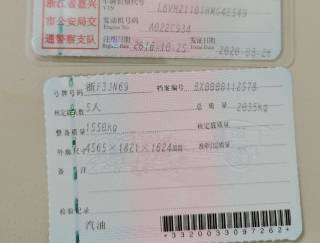 浙江省嘉兴 车辆识别代号
VIN
市公安局交 发动机号码 A022C934
Engine No.
通警察支队 注册日期 2016-10-25 发证日期
Register Date Issue Date
号牌号码 浙F3JN69 档案编号
核定载人数 5人 总质量 2035kg
整备质量 1550kg 核定载质量
外廓尺寸 4565×1821×1624mm 准牵引总质量
备注
检验记录
汽油
*3320033097262*